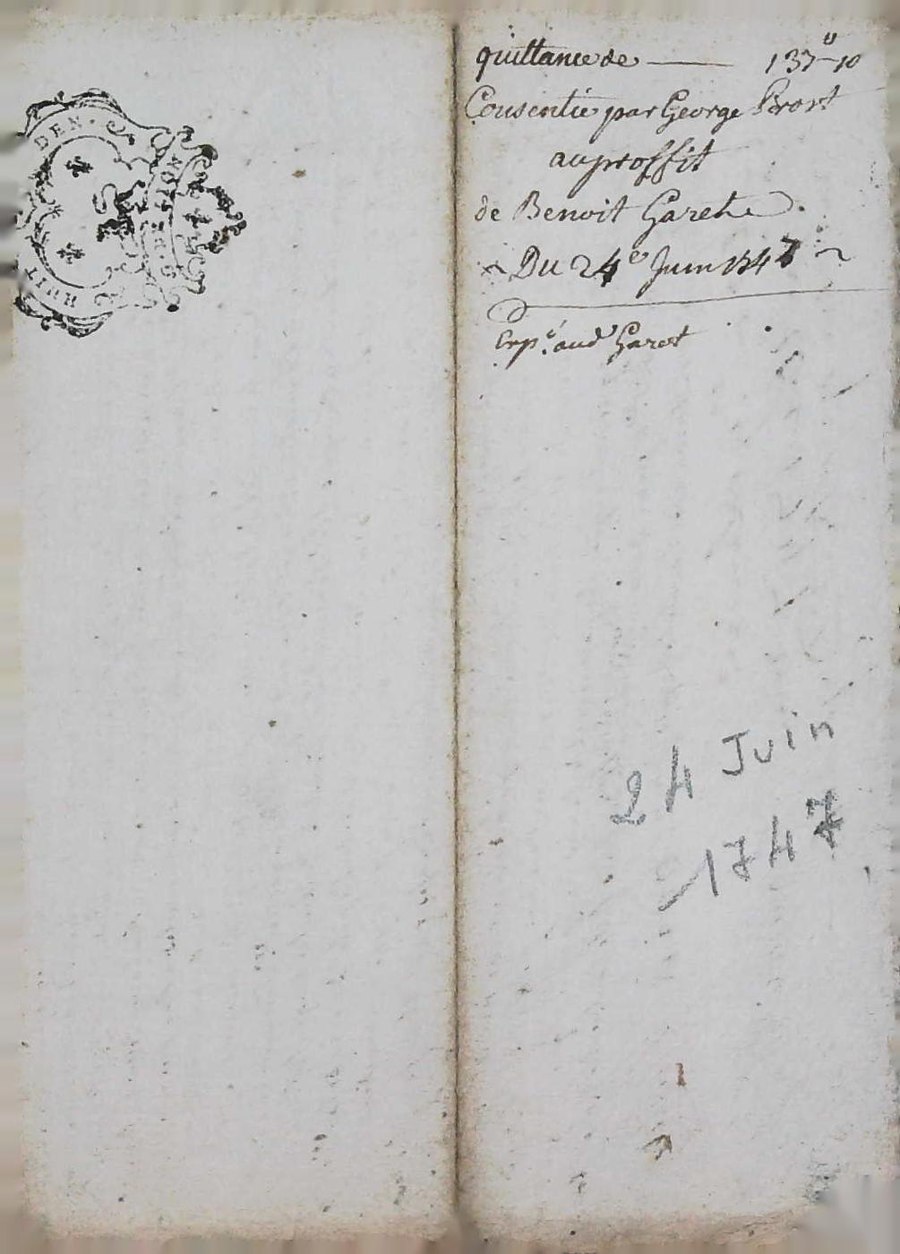 DEN.
HUIT
quittance de — 137ᵗᵗ-10
Consentie par George Brort
au proffit
de Benoit Garet
Du 24e Juin 1747
Exp.é aud Garet
24 Juin
1747